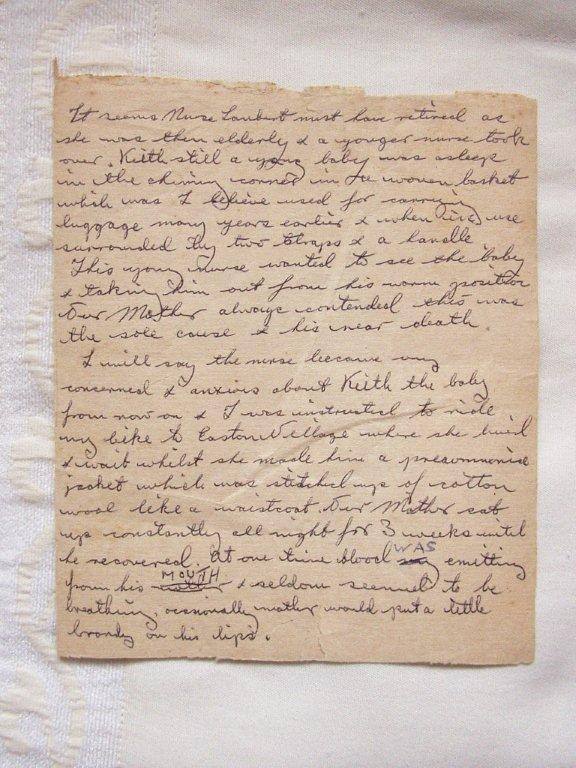 It seems Nurse Lambert must have retired as
she was then elderly & a younger nurse took
over. Keith still a young baby was asleep
in the chimney corner in the woven basket
which was I believe used for carrying
luggage many years earlier & when in use
surrounded by two straps & a handle
This young nurse wanted to see the baby
& taking him out from his warm position
Our Mother always contended this was
the sole cause & his near death.
I will say the nurse became very
concerned & anxious about Keith the baby
from now on & I was instructed to ride
my bike to Easton Village where she lived
& wait whilst she made him a pneumonia
jacket which was stitched up of cotton
wool like a waistcoat. Our Mother sat
up constantly all night for 3 weeks until
he recovered. At one time blood WAS emitting
from his MOUTH & seldom seemed to be
breathing, occasionally mother would put a little
brandy on his lips.